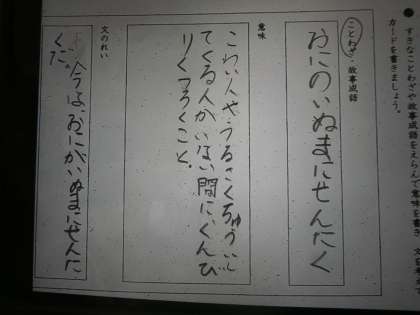 すきなことわざや故事成語をえらんで意味を書き
カードを書きましょう。
ことわざ・故事成語
おにのいぬまにせんたく
意味
こわい人や、うるさくちゅういし
てくる人がいない間に、くんび
りくつろぐこと。
文のれい
今は、おにがいぬまにせんた
くだ。